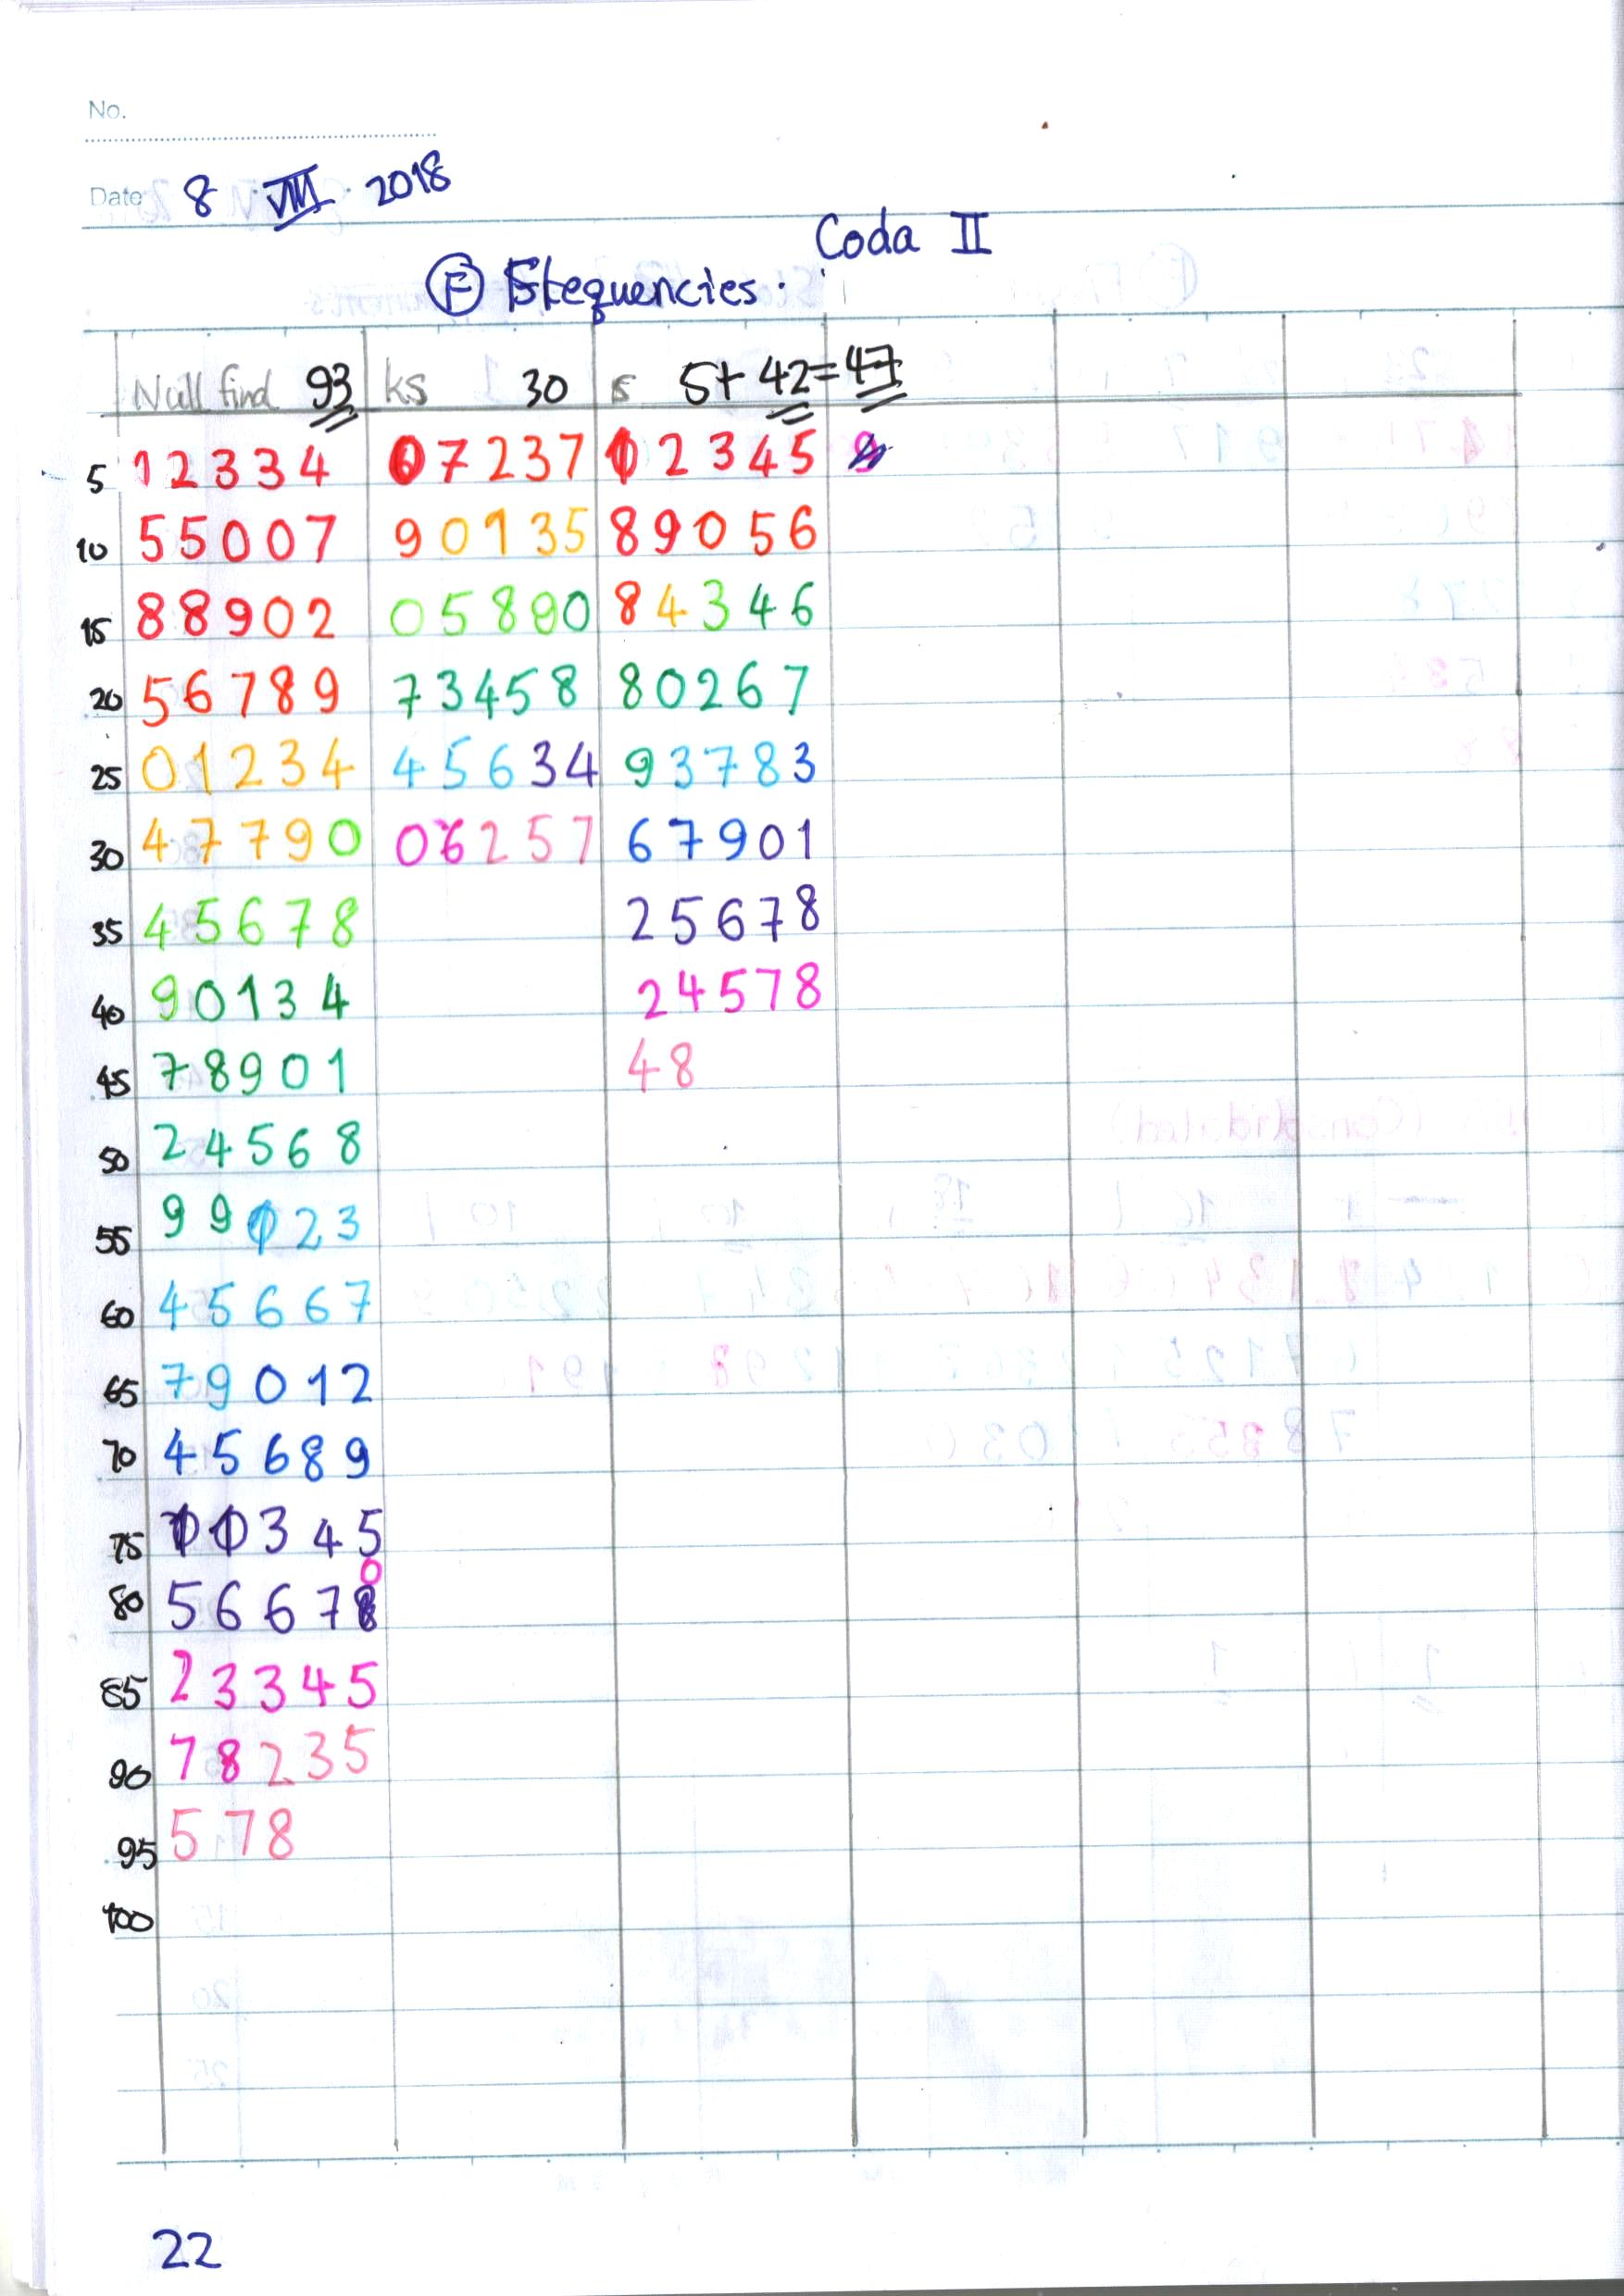 No.
Date 8 · VIII · 2018
Coda II
F Frequencies.
Null find 93 ks 30 s 5+ 42=47
5 1 2 3 3 4 0 7 2 3 7 1 2 3 4 5 9
10 5 5 0 0 7 9 0 1 3 5 8 9 0 5 6
15 8 8 9 0 2 0 5 8 9 0 8 4 3 4 6
20 5 6 7 8 9 7 3 4 5 8 8 0 2 6 7
25 0 1 2 3 4 4 5 6 3 4 9 3 7 8 3
30 4 7 7 9 0 0 6 2 5 7 6 7 9 0 1
35 4 5 6 7 8 2 5 6 7 8
40 9 0 1 3 4 2 4 5 7 8
45 7 8 9 0 1 4 8
50 2 4 5 6 8
55 9 9 0 2 3
60 4 5 6 6 7
65 7 9 0 1 2
70 4 5 6 8 9
75 1 0 3 4 5
0
80 5 6 6 7 8
85 2 3 3 4 5
90 7 8 2 3 5
95 5 7 8
100
22